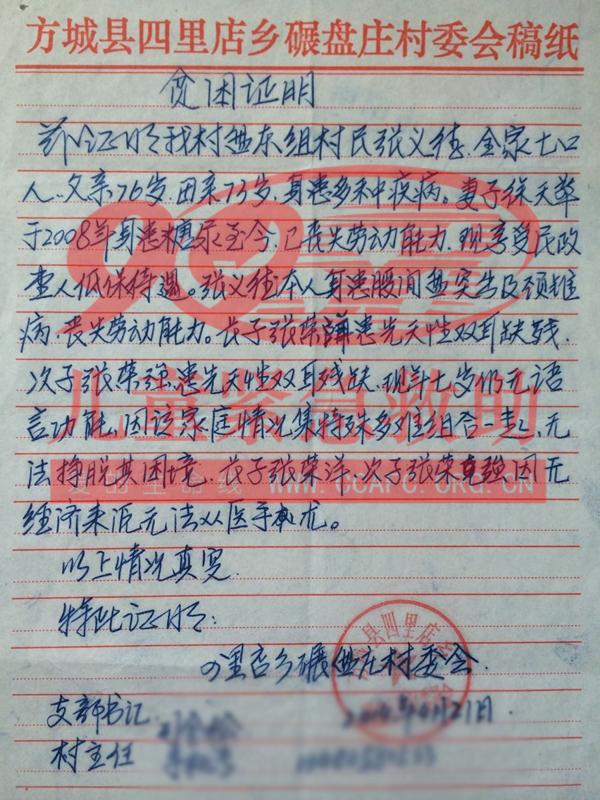 方城县四里店乡碾盘庄村委会稿纸
贫困证明
兹证明我村盘东组村民张义德,全家七口
人,父亲76岁,母亲73岁,身患多种疾病。妻子徐天
于2008年身患糖尿至今,已丧失劳动能力,现享受民政
人低保待遇。张义德本人身患股间盘突出及颈椎
病,丧失劳动能力。长子张荣 患先天性双耳缺残,
次子张荣强患先天性双耳残缺,现年七岁仍无语
言功能,因该家庭情况集特殊多难组合一起,无
法挣脱其困境,长子张荣洋,次子张荣强,因无
经济来源无法从医手术。
以上情况真实
特此证明:
四里店乡碾盘庄村委会.
支部书记
村主任
儿童紧急救助
爱的生命线 WWW.CCAFC.ORG.CN
县四里店